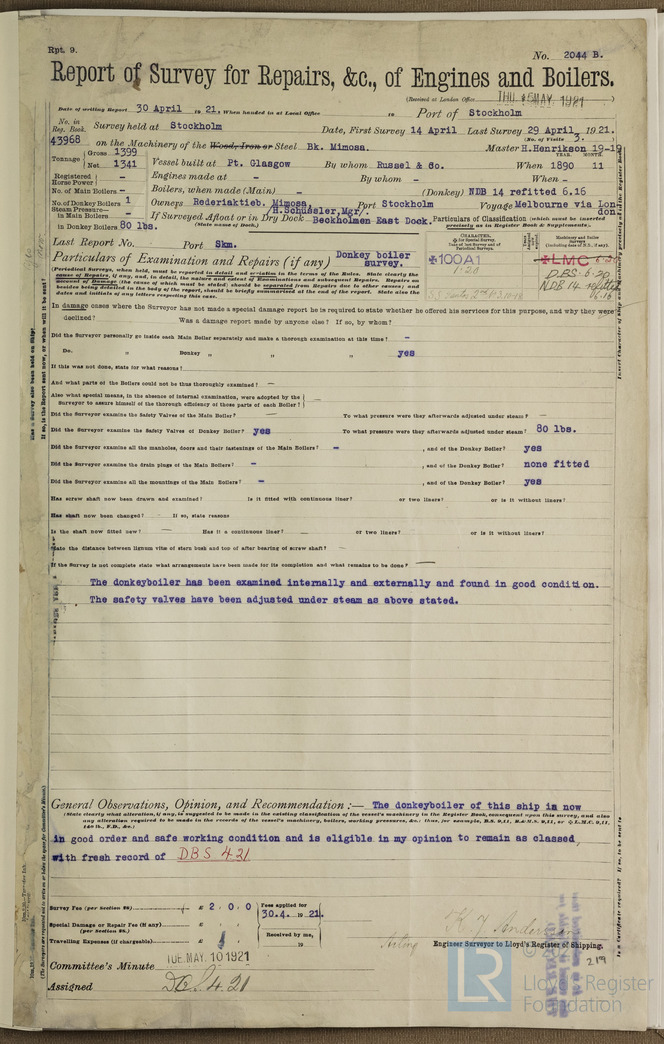 Rpt. 9.
No. 2044 B.
Report of Survey for Repairs, &c., of Engines and Boilers.
(Received at London Office THU 5 MAY 1921)
Date of writing Report 30 April 1921, When handed in at Local Office 19 Port of Stockholm
No. in Reg. Book. 43968
Survey held at Stockholm Date, First Survey 14 April Last Survey 29 April, 1921.
(No. of Visits 3.)
on the Machinery of the Wood, Iron or Steel Bk. Mimosa. Master H.Henrikson 19-19
Tonnage Gross 1399 Net 1341
Vessel built at Pt. Glasgow By whom Russel & Co. When 1890 11
YEAR. MONTH.
Registered Horse Power - Engines made at - By whom - When -
No. of Main Boilers - Boilers, when made (Main) - (Donkey) NDB 14 refitted 6.16
No. of Donkey Boilers 1 Owners Rederiaktieb. Mimosa, Port Stockholm Voyage Melbourne via London.
/H.Schüssler,Mgr/.
Steam Pressure— in Main Boilers - If Surveyed Afloat or in Dry Dock Beckholmen East Dock.
(State name of Dock.)
in Donkey Boilers 80 lbs.
Particulars of Classification (which must be inserted precisely as in Register Book & Supplements).
Last Report No. Port Skm.
Particulars of Examination and Repairs (if any) Donkey boiler survey.
(Periodical Surveys, when held, must be reported in detail and seriatim in the terms of the Rules. State clearly the cause of Repairs, if any, and, in detail, the nature and extent of Examinations and subsequent Repairs. Repairs on account of Damage (the cause of which must be stated) should be separated from Repairs due to other causes; and besides being detailed in the body of the report, should be briefly summarised at the end of the report. State also the dates and initials of any letters respecting this case.
CHARACTER,
Machinery and Boiler Surveys
✠100A1
1-20
✠LMC 6-20
DBS-6-20
NDB 14 refitted 6-16
In damage cases where the Surveyor has not made a special damage report he is required to state whether he offered his services for this purpose, and why they were declined?
Was a damage report made by anyone else? If so, by whom?
Did the Surveyor personally go inside each Main Boiler separately and make a thorough examination at this time? -
Do. " Donkey " " " yes
If this was not done, state for what reasons?
And what parts of the Boilers could not be thus thoroughly examined? —
Also what special means, in the absence of internal examination, were adopted by the Surveyor to assure himself of the thorough efficiency of those parts of each Boiler? —
Did the Surveyor examine the Safety Valves of the Main Boiler? — To what pressure were they afterwards adjusted under steam? —
Did the Surveyor examine the Safety Valves of Donkey Boiler? yes To what pressure were they afterwards adjusted under steam? 80 lbs.
Did the Surveyor examine all the manholes, doors and their fastenings of the Main Boilers? - , and of the Donkey Boiler? yes
Did the Surveyor examine the drain plugs of the Main Boilers? - , and of the Donkey Boiler? none fitted
Did the Surveyor examine all the mountings of the Main Boilers? - , and of the Donkey Boiler? yes
Has screw shaft now been drawn and examined? Is it fitted with continuous liner? or two liners? or is it without liners?
Has shaft now been changed? - If so, state reasons
Is the shaft now fitted new? - Has it a continuous liner? or two liners? or is it without liners?
State the distance between lignum vitæ of stern bush and top of after bearing of screw shaft? —
If the Survey is not complete state what arrangements have been made for its completion and what remains to be done? —
The donkeyboiler has been examined internally and externally and found in good condition.
The safety valves have been adjusted under steam as above stated.
General Observations, Opinion, and Recommendation :— The donkeyboiler of this ship is now
(State clearly what alteration, if any, is suggested to be made in the existing classification of the vessel's machinery in the Register Book, consequent upon this survey, and also any alteration required to be made in the records of the vessel's machinery, boilers, working pressures, &c.: thus, for example, B.S. 9,11, B.&M.S. 9,11, or ✠L.M.C. 9,11, 140 lb., F.D., &c.)
in good order and safe working condition and is eligible in my opinion to remain as classed,
with fresh record of DBS 4.21.
Survey Fee (per Section 28) £ 2 : 0 : 0
Special Damage or Repair Fee (if any) (per Section 28.) £
Travelling Expenses (if chargeable) £
Fees applied for 30.4. 1921.
Received by me, 19
Acting
Engineer Surveyor to Lloyd's Register of Shipping.
219
Committee's Minute TUE. MAY. 10 1921
Assigned DBS. 4.21
LR
Lloyd's Register Foundation